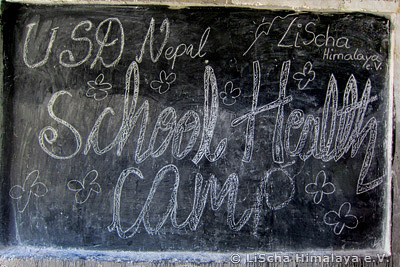 USD Nepal
LiScha
Himalaya
e.V.
School Health
Camp
© LiScha Himalaya e.V.